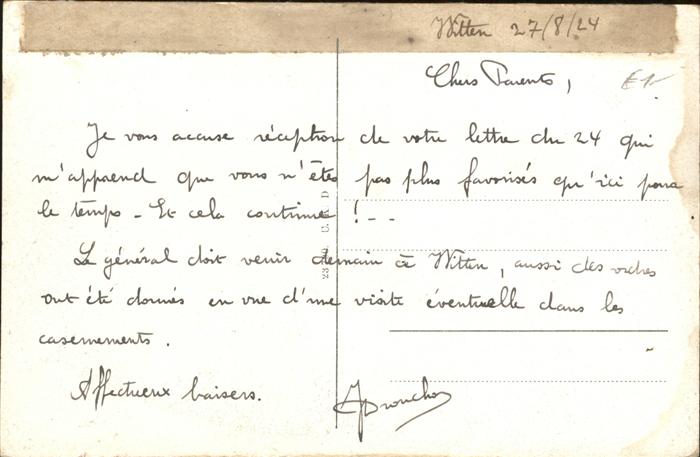 Witten 27/8/24
Chers Parents,
Je vous accuse réception de votre lettre du 24 qui
m'apprend que vous n'êtes pas plus favorisés qu'ici pour
le temps - Et cela continue ! - -
Le général doit venir demain à Witten, aussi des ordres
ont été donnés en vue d'une visite éventuelle dans les
casernements.
Affectueux baisers.